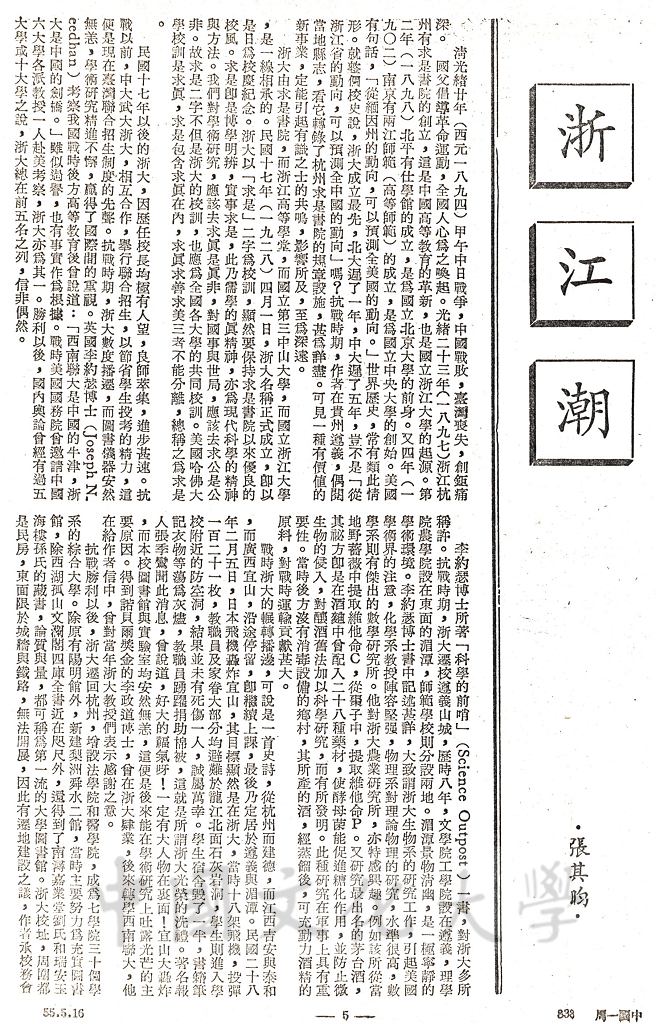 浙江潮
・張其昀・
清光緒廿年（西元一八九四）甲午中日戰爭，中國戰敗，臺灣喪失，創鉅痛
深。 國父倡導革命運動，全國人心爲之喚起。光緒二十三年（一八九七）浙江杭
州有求是書院的創立，這是中國高等教育的革新，也是國立浙江大學的起源。第
二年（一八九八）北平有仕學館的成立，是爲國立北京大學的前身。又四年（一
九〇二）南京有兩江師範（高等師範）的成立，是爲國立中央大學的前始。美國
有句話，「從緬因州的動向，可以預測全美國的動向。」世界歷史，常有類此情
形。就整個校史說，浙大成立最先，北大遲了一年，中大遲了五年，豈不是「從
浙江省的動向，可以預測全中國的動向」嗎？抗戰時期，作者在貴州遵義，偶閱
當地縣志，看它轉錄了杭州求是書院的規章設施，甚爲詳盡。可見一種有價値的
新事業，定能引起有識之士的共鳴，影響所及，至爲深遠。
浙大由求是書院，而浙江高等學堂，而國立第三中山大學，而國立浙江大學
，是一線相承的。民國十七年（一九二八）四月一日，浙大名稱正式成立，卽以
是日爲校慶紀念。浙大以「求是」二字爲校訓，顯然要保持求是書院以來優良的
校風。求是卽是博學明辨，實事求是，此乃儒學的眞精神，亦爲現代科學的精神
與方法。我們對學術研究，應該去求眞是眞非，對國事與世局，應該去求公是公
非。故求是二字不但是浙大的校訓，也應爲全國各大學的共同校訓。美國哈佛大
學校訓是求眞，求是包含求眞在內，求眞求善求美三者不能分離，總稱之爲求是
民國十七年以後的浙大，因歷任校長均極有人望，良師萃集，進步甚速。抗
戰以前，中大武大浙大，相互合作，舉行聯合招生，以節省學生投考的精力，這
便是現在臺灣聯合招生制度的先聲。抗戰時期，浙大數度播遷，而圖書儀器安然
無恙，學術研究精進不懈，贏得了國際間的重視。英國李約瑟博士（Joseph N.
eedhan）考察我國戰時後方高等教育後曾說道：「西南聯大是中國的牛津，浙
大是中國的劍橋。」雖似過譽，也有事實作爲根據。戰時美國國務院曾邀請中國
六大學各派教授一人赴美考察，浙大亦爲其一。勝利以後，國內輿論曾經有過五
大學或十大學之說，浙大總在前五名之列，信非偶然。
李約瑟博士所著「科學的前哨」（Science Outpost）一書，對浙大多所
稱許。抗戰時期，浙大遷校遵義山城，歷時八年，文學院工學院設在遵義，理學
院農學院設在東面的湄潭，師範學校則分設兩地。湄潭景物清幽，是一極寧靜的
學術環境。李約瑟博士書中記述甚詳，大致謂浙大生物系的研究工作，引起美國
學術界的注意，化學系教授陣容堅强，物理系對理論物理的研究，水準很高，數
學系則有傑出的數學研究所。他對浙大農業研究所，亦特感興趣。例如該所從當
地野薔薇中提取維他命C，從棗子中，提取維他命P。又研究最出名的茅台酒，
其祕方卽是在酒麯中曾配入二十八種藥材，使酵母菌能促進糖化作用，並防止微
生物的侵入，對釀酒舊法加以科學研究，而有所發明。此種研究在軍事上具有重
要性。當時後方沒有消毒設備的鄉村，其所產的酒，經蒸餾後，可充動力酒精的
原料，對戰時運輸貢獻甚大。
戰時浙大的輾轉播遷，可說是一首史詩，從杭州而建德，而江西吉安與泰和
，而廣西宜山，沿途停留，卽繼續上課，最後乃定居於遵義與湄潭。民國二十八
年二月五日，日本飛機轟炸宜山，其目標顯然是在浙大，當時十八架飛機，投彈
一百二十一枚，教職員及家眷大部分均避難於龍江北面石灰岩洞，學生則進入學
校附近的防空洞，結果並未有死傷一人，誠屬萬幸。學生宿舍毀了一半，書籍筆
記衣物等蕩爲灰燼，教職員踴躍捐助棉被，這就是所謂浙大光榮的洗禮。著名報
人張季鸞聞此消息，曾說道，好大的福氣呀！一定有大人物在裏面！宜山大轟炸
，而本校圖書館與實驗室均安然無恙，這便是後來能在學術研究上吐露光芒的主
要原因。得到諾貝爾獎金的李政道博士，曾在浙大肄業，後來轉學西南聯大，他
在給作者信中，曾對當年浙大教授們表示感謝之意。
抗戰勝利以後，浙大遷回杭州，增設法學院和醫學院，成爲七學院三十個學
系的綜合大學。除原有陽明館外，新建梨洲舜水二館，當時主要努力爲充實圖書
館，除西湖孤山文瀾閣四庫全書近在咫尺外，還得到了南潯嘉業堂劉氏和瑞安玉
海樓孫氏的藏書，論質與量，都可稱爲第一流的大學圖書館。浙大校址，周圍都
是民房，東面限於城牆與鐵路，無法開展，因此有遷地建設之議，作者承校務會
55.5.16
— 5 —
838 中國一周
中國文化大學